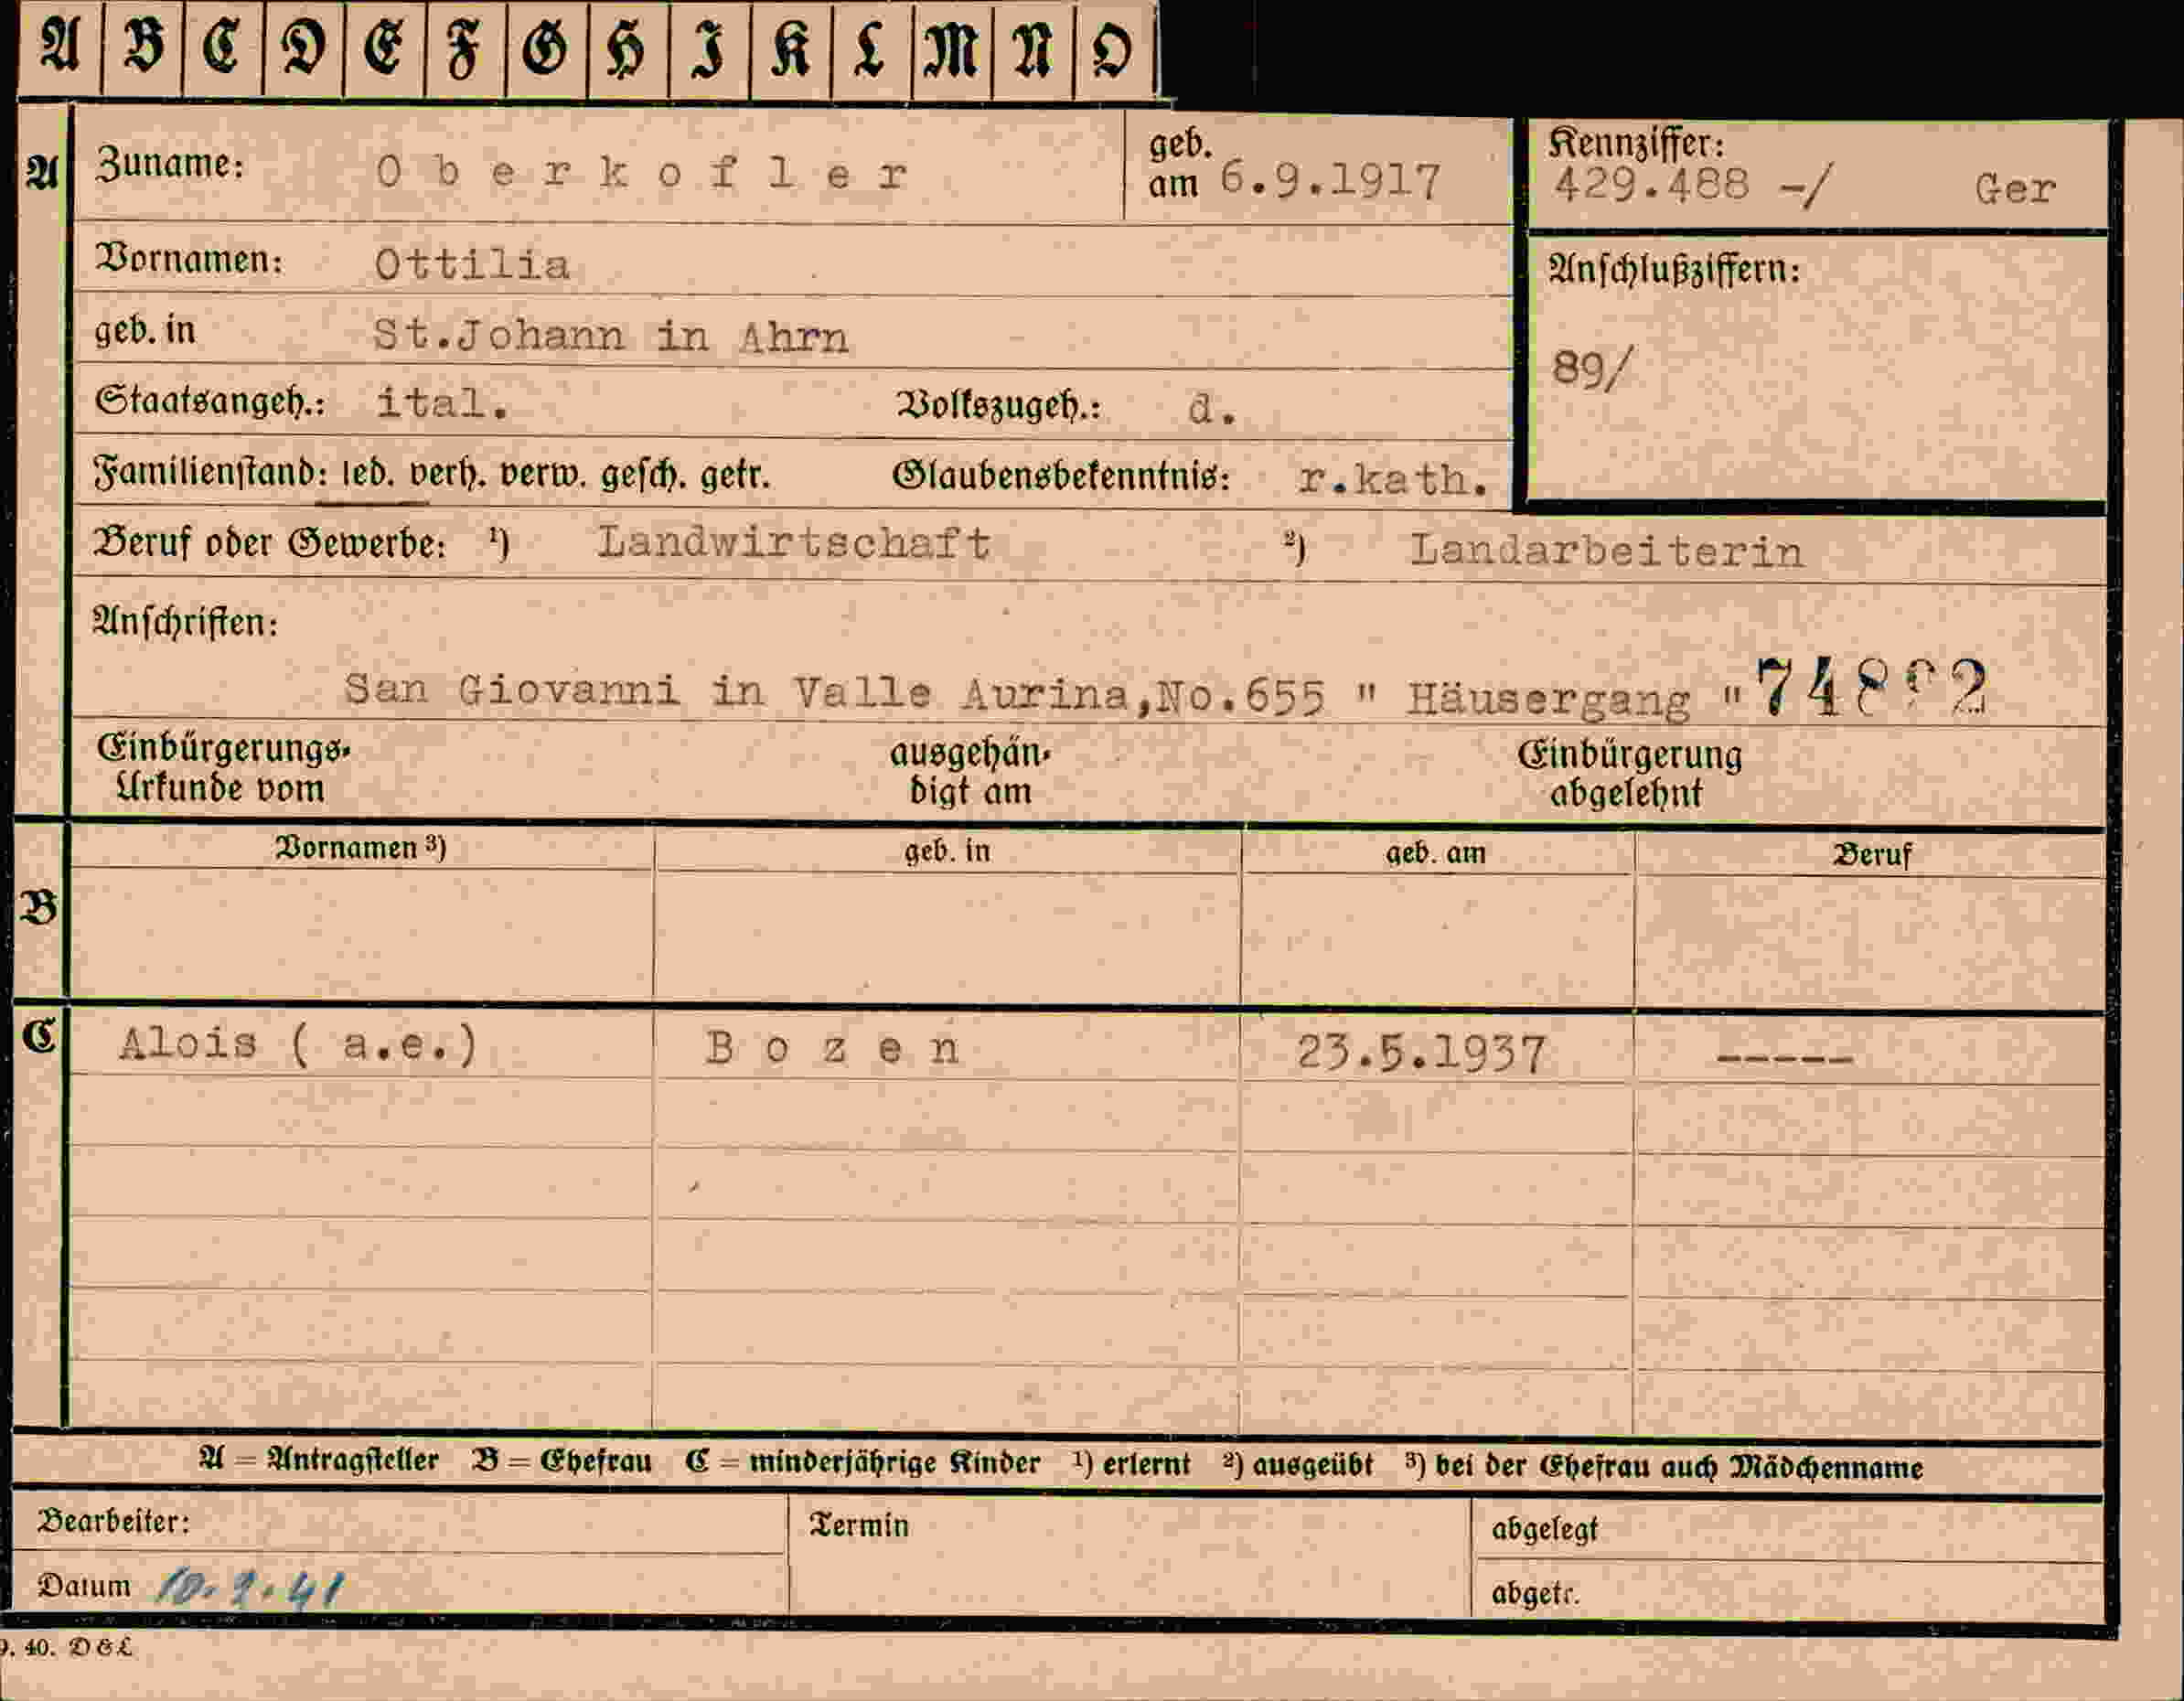 A B C D E F G H I K L M N O
A Zuname: Oberkofler geb. am 6.9.1917 Kennziffer: 429.488 -/ Ger
Vornamen: Ottilia Anschlußziffern:
geb. in St.Johann in Ahrn
89/
Staatsangeh.: ital. Volkszugeh.: d.
Familienstand: led. verh. verw. gesch. getr. Glaubensbekenntnis: r.kath.
Beruf oder Gewerbe: ¹) Landwirtschaft ²) Landarbeiterin
Anschriften:
San Giovanni in Valle Aurina,No.655 " Häusergang "
Einbürgerungs- ausgehän- Einbürgerung
Urkunde vom digt am abgelehnt
Vornamen ³) geb. in geb. am Beruf
B
C Alois ( a.e.) Bozen 23.5.1937 -----
A = Antragsteller B = Ehefrau C = minderjährige Kinder ¹) erlernt ²) ausgeübt ³) bei der Ehefrau auch Mädchenname
Bearbeiter: Termin abgelegt
Datum abgetr.
40. D&L